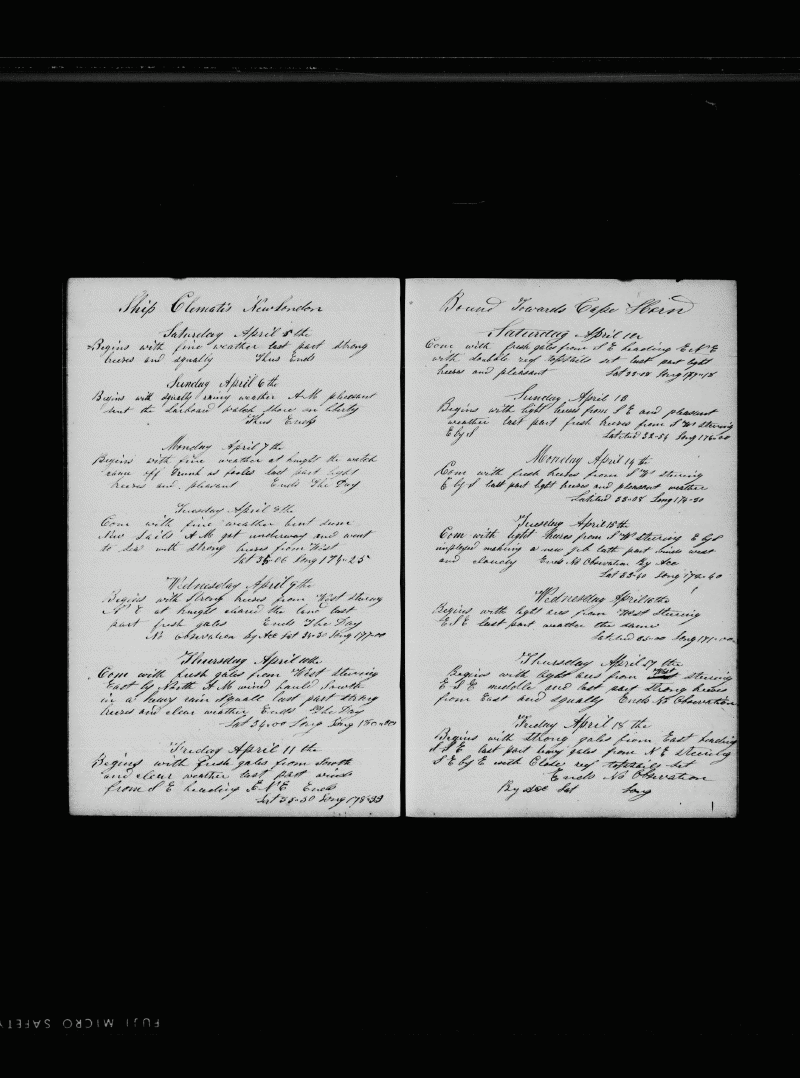 Ship Clematis New London
Saturday April 5th
Begins with fine weather last part strong
breeses and squally Thus Ends
Sunday April 6th
Begins with squally rainy weather A M pleasant
sent the Larboard watch shore on liberty
Thus Ends
Monday April 7th
Begins with fine weather at knight the watch
came off drunk as fooles last part light
breeses and pleasant Ends The Day
Tuesday April 8th
Com with fine weather bent some
New Sails A M got underway and went
to sea with strong breses from West
Lat 35-06 Long 174-25
Wednesday April 9th
Begins with Strong breses from West stering
N E at knight cleared the land last
part fresh gales Ends The Day
No observation by Acc Lat 34-30 Long 177-00
Thursday April 10th
Com with fresh gales from West stering
East by North A M wind hauld South
in a heavy rain squall last part strong
breeses and clear weather Ends The Day
Lat 34-00 Long 180-00
Friday April 11 th
Begins with fresh gales from South
and clear weather last part winds
from S E heading E N E Ends
Lat 33-30 Long 178-33
Bound Towards Cape Horn
Saturday April 12
Com with fresh gales from S E heading E N E
with double reef topsails set last part light
breses and pleasant Lat 32-08 Long 177-18
Sunday April 13
Begins with light breses from S E and pleasant
weather last part fresh breses from S W stering
E by S Latitud 32-56 Long 176-00
Monday April 14 th
Com with fresh breeses from S W stering
E by S last part light breeses and pleasant weather
Latitud 33-08 Long 174-20
Tuesday April 15th
Com with light breses from S W stering E by S
employed making a new jib latt part winds west
and cloudy Ends No Observation By Acc
Lat 33-41 Long 172-40
Wednesday April 16th
Begins with light airs from West stering
E S E last part weather the same
Latitud 35-00 Long 171-00
Thursday April 17 th
Begins with light airs from West stering
E S E middle and last part Strong breses
from East and squally Ends No Observation
Friday April 18 th
Begins with strong gales from East heading
S S E last part heavy gales from N E stering
S E by E with Close reef topsails set
Ends No Obsrvation
By acc Lat Long
FUJI MICRO SAFETY